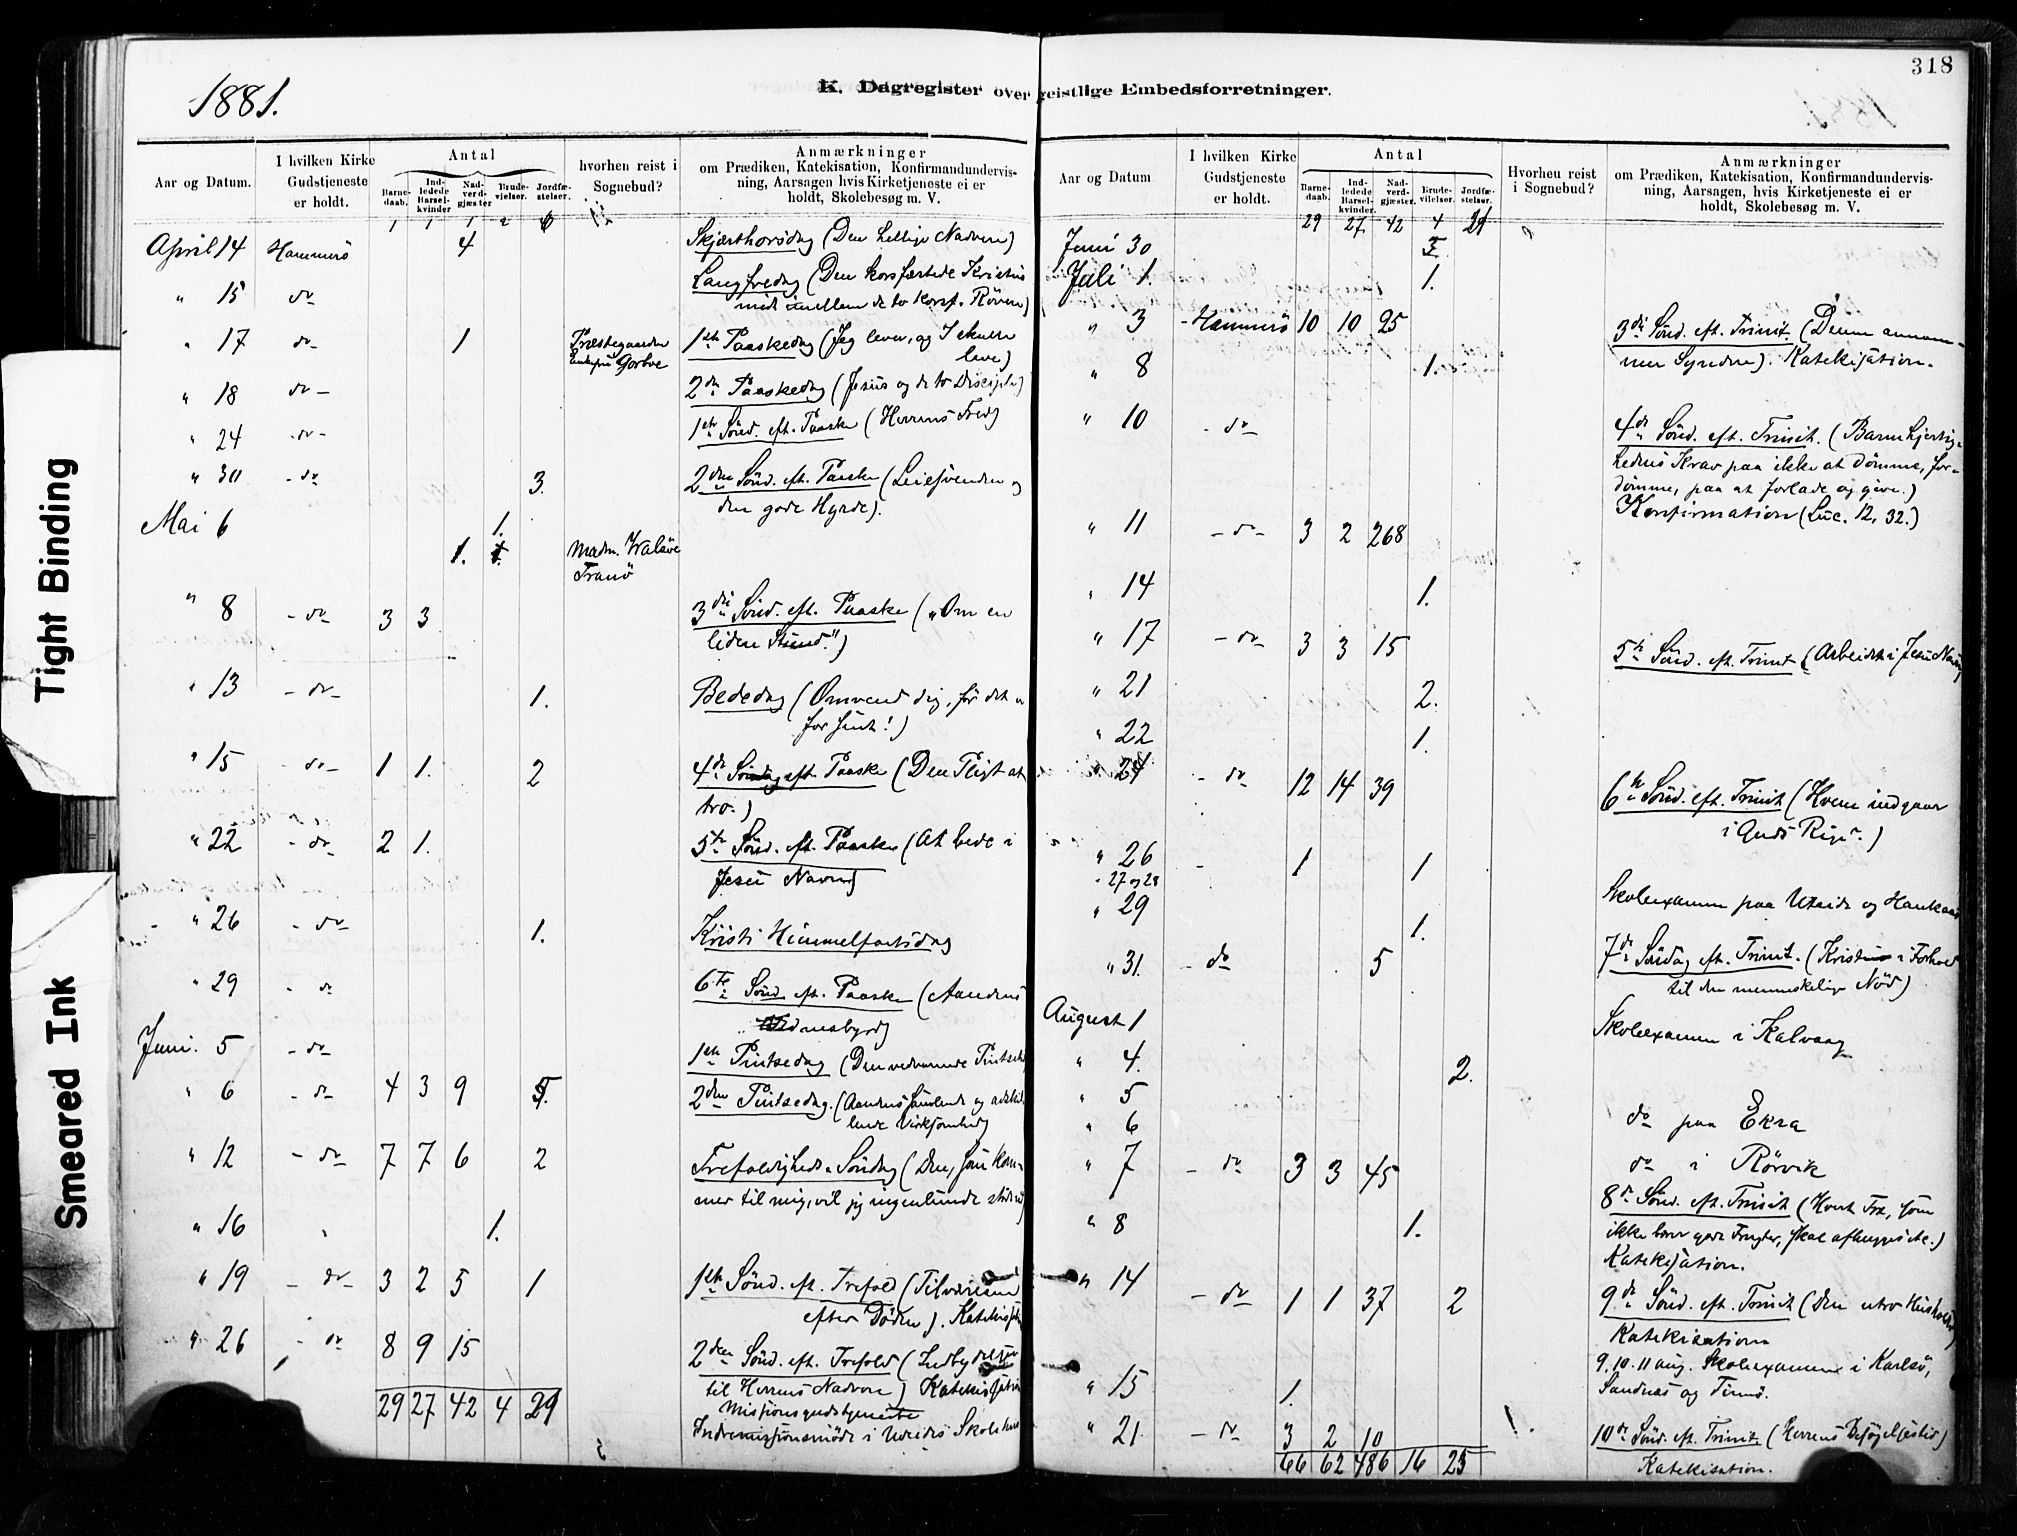 318
1881.
K. Dagregister over geistlige Embedsforretninger.
Tight Binding
Smeared Ink
Aar og Datum.
I hvilken Kirke Gudstjeneste er holdt.
Antal
Barne-daab.
Ind-ledede Barsel-kvinder
Nad-verd-gjæster.
Brude-vielser.
Jordfæ-stelser.
hvorhen reist i Sognebud?
Anmærkninger
om Prædiken, Katekisation, Konfirmandundervis-
ning, Aarsagen hvis Kirketjeneste ei er
holdt, Skolebesøg m. V.
1 1 1 2 6
April 14 Hammerö 4 Skjærthorsdag (Den hellige Nadvere)
" 15 do Langfredag (Den korsfæstede Kristus
midt imellem de to korsf. Røvere)
" 17 do 1 Præstegaarden 1ste Paaskedag (Jeg lever, og I skulle
leve)
" 18 do 2den Paaskedag (Jesus og de to Disciple)
" 24 do 1ste Sönd. eft. Paaske (Herrens Fred)
" 30 do 3. 2den Sönd. eft. Paaske (Leiesvenden og
den gode Hyrde).
Mai 6 1.
1. 1. Madm. Walsöe
Tranö
" 8 do 3 3 3die Sönd. eft. Paaske ("Om en
liden Stund")
" 13 do 1. Bededag (Omvend dig, før det er
for sent!)
" 15 do 1 1. 2 4de Söndag eft. Paaske (Den Pligt at
tro.)
" 22 do 2 1. 5te Sönd. eft. Paaske (At bede i
Jesu Navn)
" 26 do 1. Kristi Himmelfartsdag
" 29 do 6te Sönd. eft. Paaske (Aandens
Vidnesbyrd)
Juni. 5 do 1ste Pintsedag (Den vedvarende Pintsefest
" 6 do 4 3 9 5. 2den Pintsedag. (Aandens samlende og adskil-
lende Virksomhed)
" 12 do 7 7 6 2 Trefoldigheds Söndag (Den, som kom-
mer til mig, vil jeg ingenlunde støde ud)
" 16 " 1.
" 19 do 3 2 5 1 1ste Sönd. eft. Trefold (Tilværelsen
efter Döden). Katekisation
" 26 do 8 9 15 2den Sönd. eft. Trefold (Indbydelsen
til Herrens Nadvere) Katekisation
29 27 42 4 21 Missionsgudstjeneste
Indremissionsmöde i Uteides Skolehus
Aar og Datum
I hvilken Kirke Gudstjeneste er holdt.
Antal
Barne-daab.
Ind-ledede Barsel-kvinder.
Nad-verd-gjæster.
Brude-vilelser.
Jordfæ-stelser.
Hvorheu reist i Sognebud?
Anmærkninger
om Prædiken, Katekisation, Konfirmandundervis-
ning, Aarsagen, hvis Kirketjeneste ei er
holdt, Skolebesøg m. V.
29 27 42 4 21
Juni 30
Juli 1. 1.
" 3 Hammerö 10 10 25 3die Sönd. eft. Trinit. (Denne annam-
mer Syndere). Katekisation.
" 8 1.
" 10 do 4de Sönd. eft. Trinit. (Barmhjertig-
hedens Krav paa ikke at dömme, for-
dömme, paa at forlade og give.)
" 11 do 3 2 268 Konfirmation (Luc. 12, 32.)
" 14 1.
" 17 do 3 3 15 5te Sönd. eft. Trinit (Arbeidet i Jesu Navn)
" 21 2.
" 22 1.
" 24 do 12 14 39 6te Sönd. eft. Trinit (Hvem indgaar
i Guds Rige.)
" 26 1 1
" 27 og 28 Skoleexamen paa Uteide og
" 29 1.
" 31. do 5 7de Söndag eft. Trinit. (Kristus i Forhold
til den menneskelige Nöd)
August 1 Skoleexamen i Kalvaag
" 4. 2.
" 5 do paa Ekra
" 6 do i Rörvik
" 7 do 3 3 45 8de Sönd. eft. Trinit (Hvert Træ, som
ikke bærer gode Frugter, skal afhugges etc.)
Katekisation.
" 8 1.
" 14 do 1 1 37 2 9de Sönd. eft. Trinit (Den utro Husholder)
Katekisation
9. 10. 11 aug. Skoleexamen i Karlsö,
Sandnæs og
" 15 1.
" 21 do 3 2 10 10de Sönd. eft. Trinit. (Herrens Besøgelsestid)
Katekisation.
66 62 486 16 25